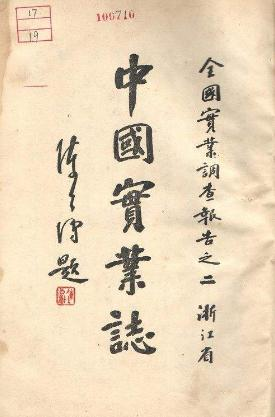 17
19
全國實業調查報告之二 浙江省
中國實業誌
陳公博題